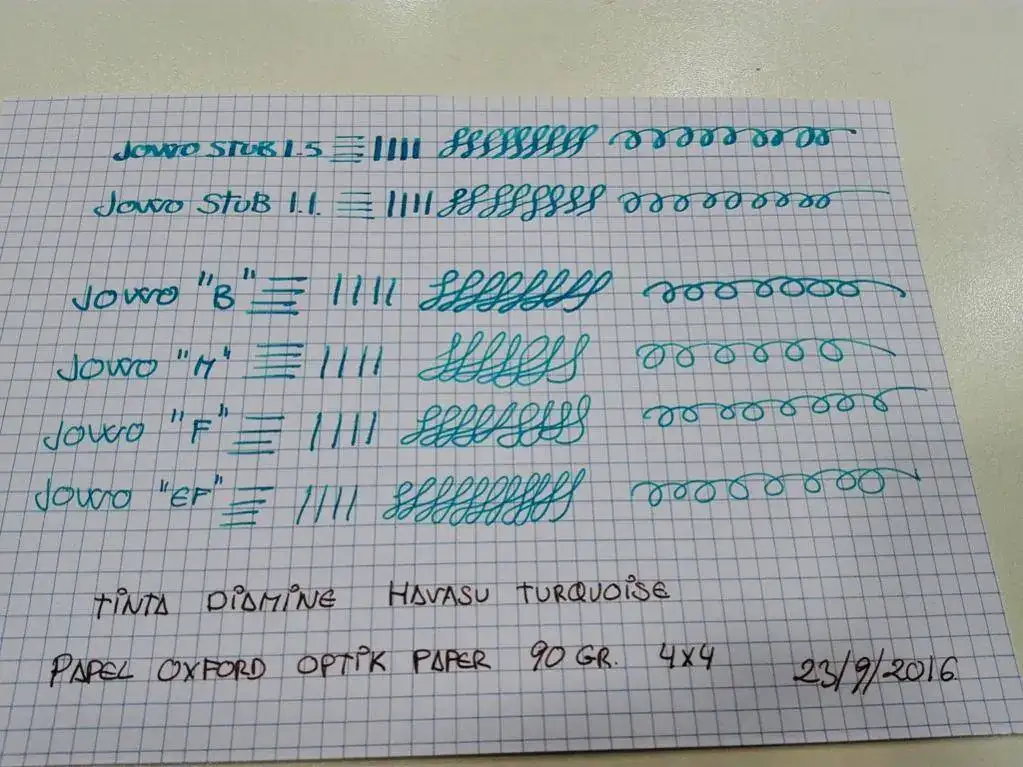 JOWO STUB 1.5
JOWO STUB 1.1.
JOWO "B"
JOWO "M"
JOWO "F"
JOWO "EF"
TINTA DIAMINE HAVASU TURQUOISE
PAPEL OXFORD OPTIK PAPER 90 GR. 4X4 23/9/2016